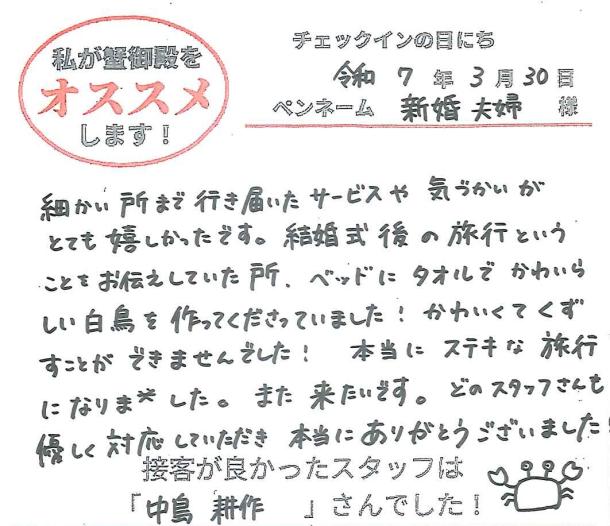 私が蟹御殿を
オススメ
します！
チェックインの日にち
令和 7 年 3 月 30 日
ペンネーム 新婚夫婦 様
細かい所まで行き届いたサービスや気づかいが
とても嬉しかったです。結婚式後の旅行という
ことをお伝えしていた所、ベッドにタオルでかわいら
しい白鳥を作ってくださっていました！かわいくてくず
すことができませんでした！ 本当にステキな旅行
になりました。また来たいです。どのスタッフさんも
優しく対応していただき本当にありがとうございました！
接客が良かったスタッフは
「中島 耕作 」さんでした！